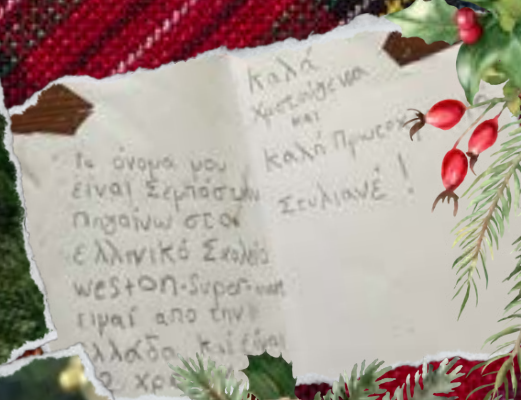 Το όνομα μου
είναι Σεμπαστιαν
Πηγαίνω στο
ελληνικό Σχολείο
weston-super-mare
είμαι απο την
Ελλάδα και είμαι
χρο
Καλά
Χριστούγεννα
και
καλή Πρωτοχ
Στυλιανέ!